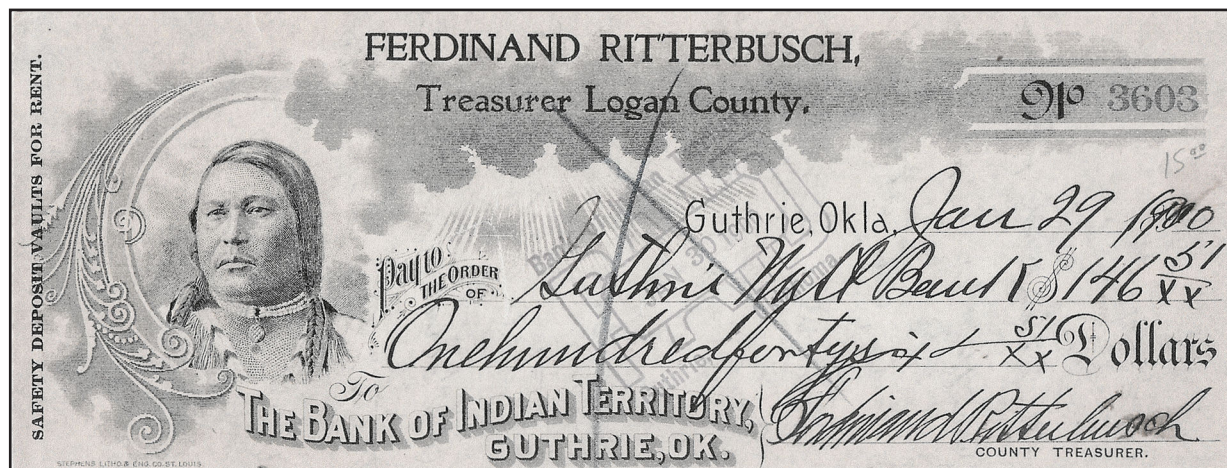 SAFETY DEPOSIT VAULTS FOR RENT.
FERDINAND RITTERBUSCH,
Treasurer Logan County.
No 3603
15 00
Guthrie, Okla, Jan 29 1900
Pay to THE ORDER OF Guthrie Nat'l Bank $ 146 51/XX
One hundred forty six & 51/XX Dollars
To
THE BANK OF INDIAN TERRITORY,
GUTHRIE, OK.
Ferdinand Ritterbusch
COUNTY TREASURER.
STEPHENS LITHO & ENG. CO. ST. LOUIS.